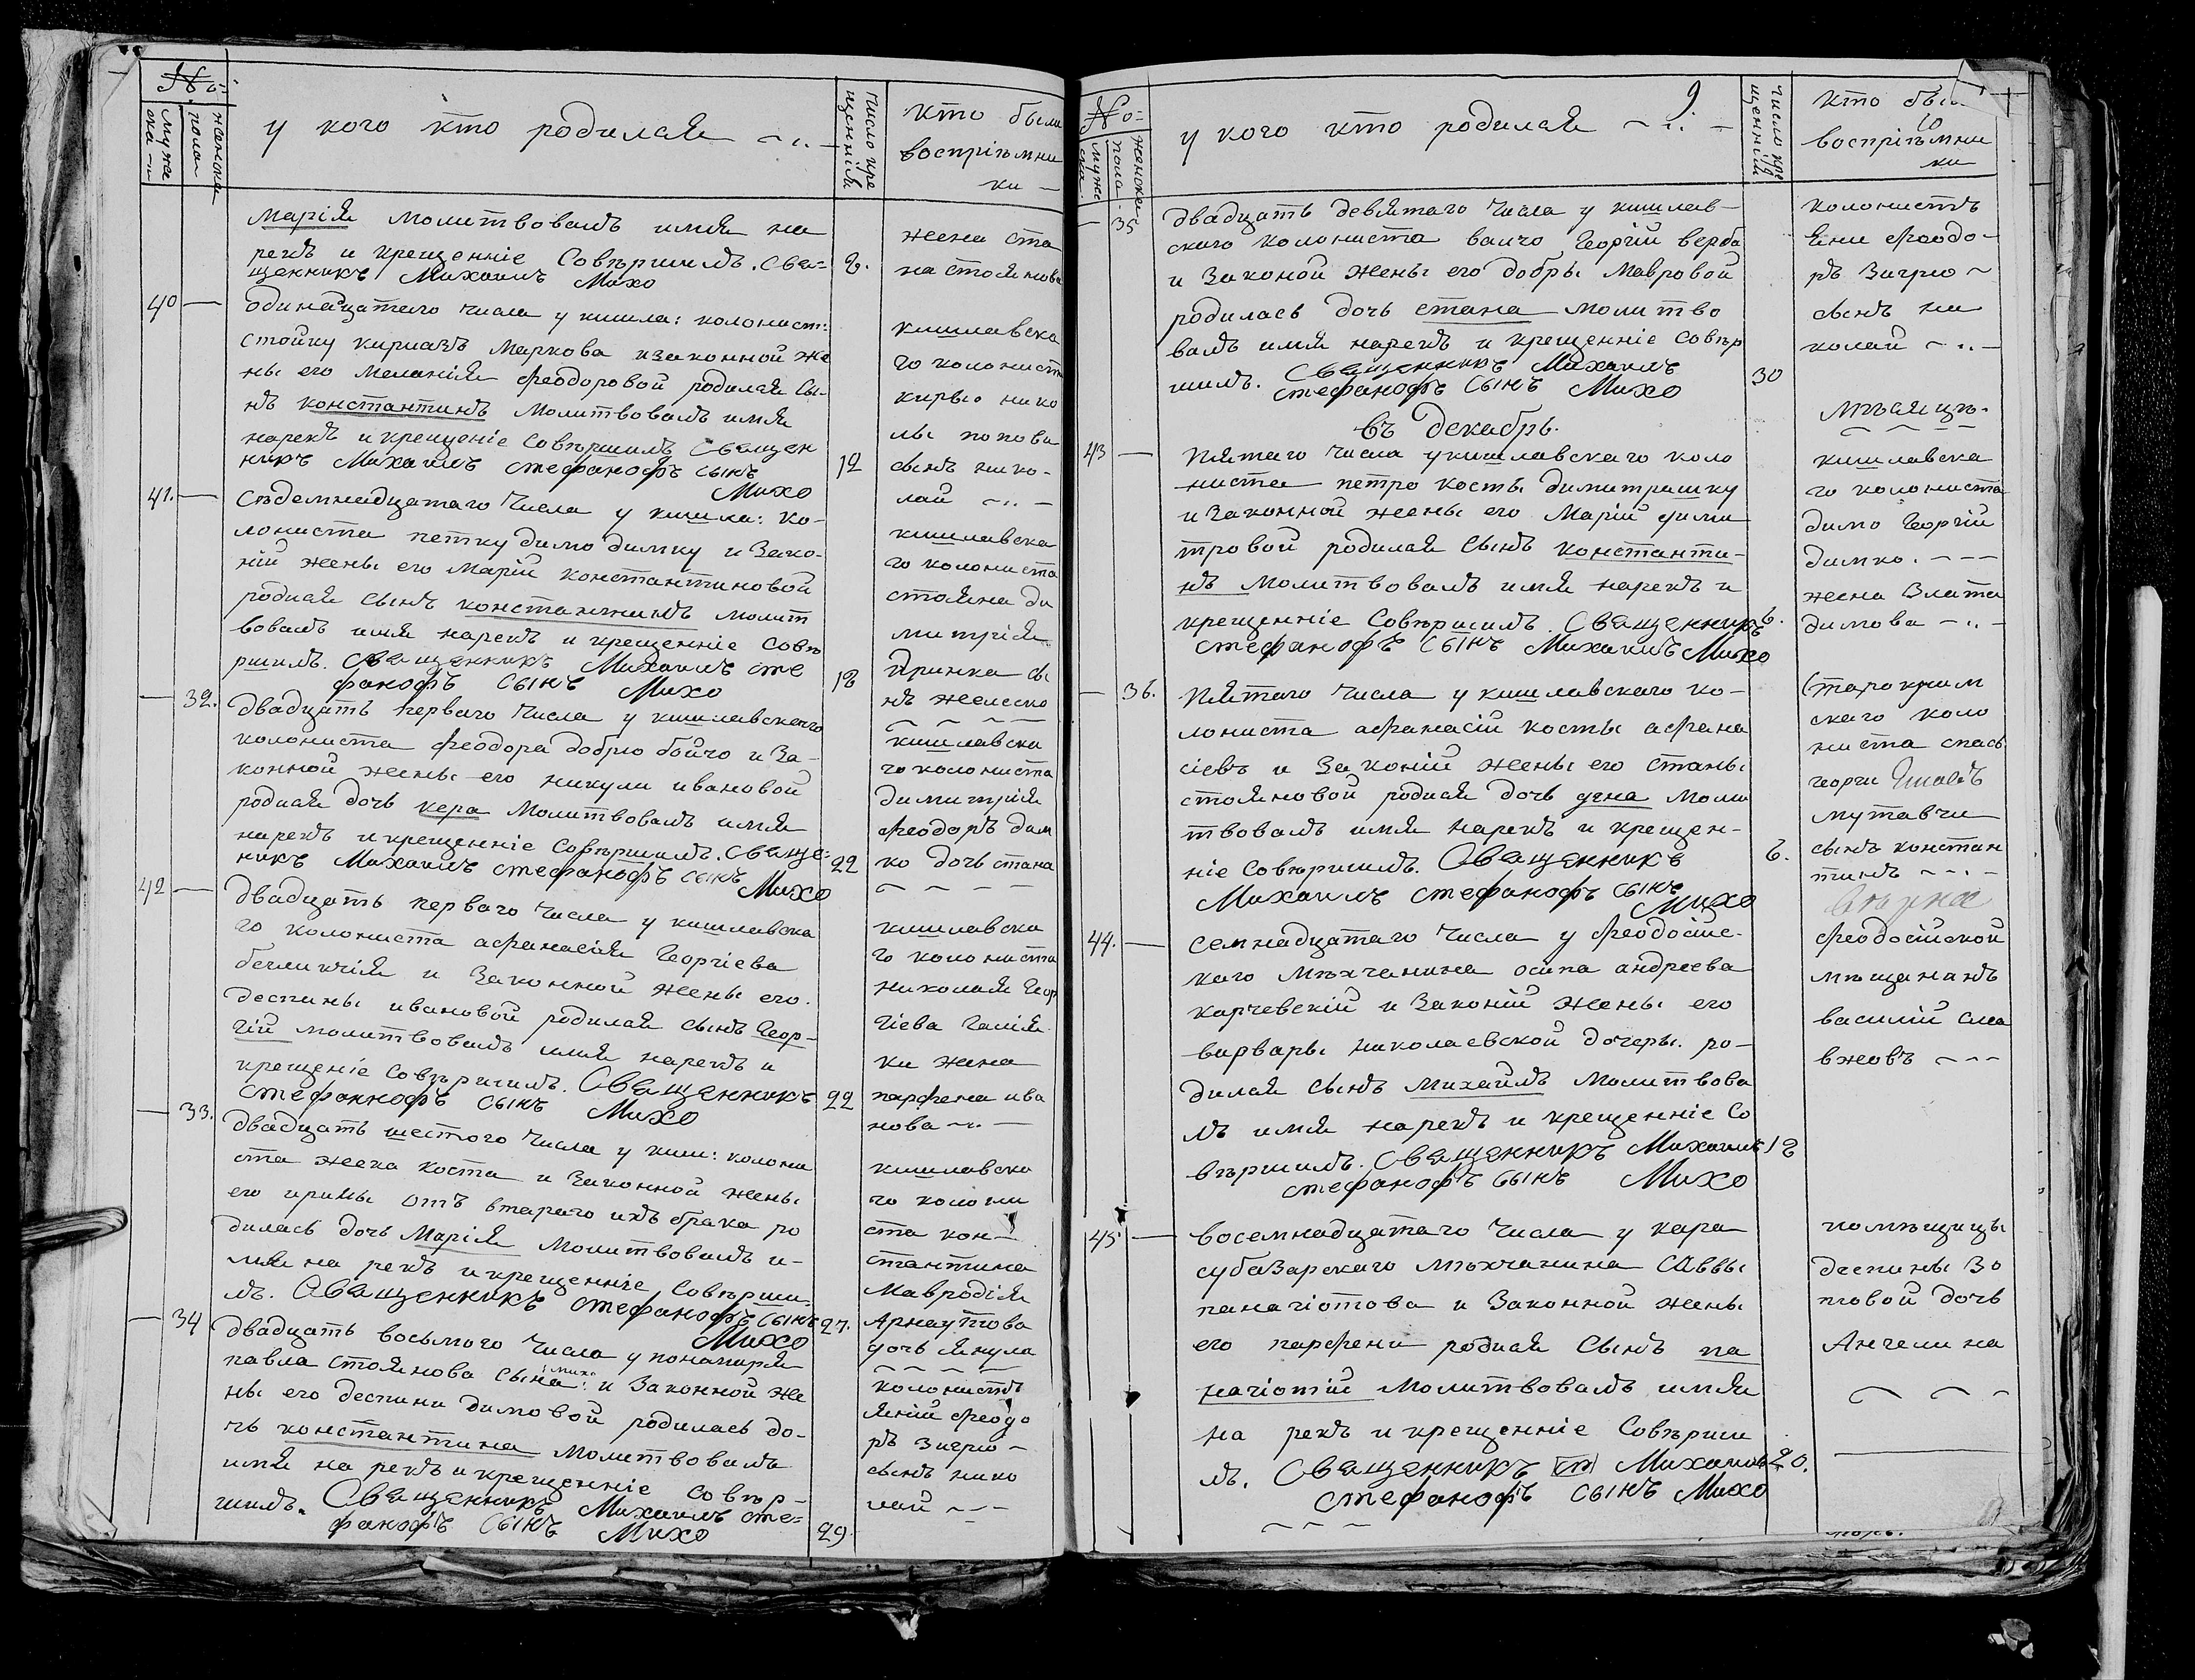 №
мужеска
пола
женска
у кого кто родился
число кре
щенній
кто были
воспріѣмни
ки
Марія молитвовалъ имя на
рекъ и крещенніе Совѣршилъ. Свя=
щенникъ Михаилъ Михо
2.
жена ста
на стоянова
40
одинадцатаго числа у кишла: колонист:
стойну кириазъ Маркова изаконной же
ны его Меланія феодоровой родился Сы-
нъ константинъ Молитвовалъ имя
нарекъ и крещеніе Совѣршилъ Священ
никъ Михаилъ стефанофъ сынъ
Михо
12
кишлавска
го колониста
кирью нико
лы попова
сынъ нико-
лай
41.
Сѣдемнадцатаго Числа у кишла: ко-
лониста петку димо димку и Зако-
ній жены его Маріи константиновой
родился Сынъ константинъ молит
вовалъ имя нарекъ и крещенніе Совѣ
ршилъ. Священникъ Михаилъ сте
фанофъ Сынъ Михо
18
кишлавска
го колониста
стояна ди
митрія
сы
нъ желеско
32.
двадцать перваго Числа у кишлавскаго
колониста феодора добрю бойчо и За-
конной жены его никули ивановой
родился дочь кера Молитвовалъ имя
нарекъ и крещенніе Совѣршилъ. Священ-
никъ Михаилъ стефанофъ сынъ
Михо
22
кишлавска
го колониста
димитрія
феодоръ дим
ко дочь стана
42
двадцать перваго Числа у кишлавска
го колониста афанасія Георгіева
бегликчія и Законной жены его
деспины ивановой родился сынъ Геор-
гій молитвовалъ имя нарекъ и
крещеніе Совѣршилъ. Священникъ
Стефанофъ Сынъ Михо
22
кишлавска
го колониста
николая Геор
гіева Галія
ки жена
парфена ива
нова
33.
двадцать шестого Числа у киш: колони
ста жека коста и Законной жены
его ирины отъ втараго ихъ брака ро
дилась дочь Марія Молитвовалъ и-
мя на рекъ и крещенніе Совѣрши
лъ. Священникъ стефанофъ Сынъ
Михо
27.
кишлавска
го колони
ста кон-
стантина
Мавродія
Арнаутова
дочь янула
34
двадцать восьмого Числа у понамаря
павла стоянова сына: Михо и Законной же
ны его деспини димовой родилась до-
чь константина Молитвовалъ
имя на рекъ и крещенніе Совѣр-
шилъ. Священникъ Михаилъ сте=
фанофъ Сынъ Михо
29.
колонистъ
яній феодо
ръ Загрю-
сынъ нико
лай
№
мужес
ка
пола
женска
у кого кто родился
9
число кре
щенній
кто были
воспріѣмни
ки
35
двадцать девятаго Числа у кишлав-
скаго колониста ванчо Георгій верба
и Законой жены его добры Мавровой
родилась дочь стана Молитво
валъ имя нарекъ и крещенніе Совѣр
шилъ. Священникъ Михаилъ
стефанофъ Сынъ Михо
30
колонистъ
яни феодо-
ръ Загрю
сынъ ни
колай
въ декабрь.
Мѣсяцъ.
43
пятаго Числа у кишлавскаго коло
ниста петро косты димитрашку
и Законной жены его Маріи дими
тровой родился Сынъ константи-
нъ Молитвовалъ имя нарекъ и
крещенніе Совѣршилъ. Священникъ
стефанофъ Сынъ Михаилъ Михо
6.
кишлавска
го колониста
димо Георгій
димко.
жена Злата
димова
36.
пятаго Числа у кишлавскаго ко-
лониста афанасій косты афана
сіевъ и Законій жены его станы
стояновой родися дочь дена Моли
твовалъ имя нарекъ и крещен-
ніе Совѣршилъ. Священникъ
Михаилъ стефанофъ Сынъ
Михо
6.
старокрим
скаго коло
ниста спасъ
георги
мутавчи
сынъ констан
тинъ
44.
семнадцатаго Числа у феодосіис-
каго Мѣхчанина осипа андреева
карчевскій и Законій жены его
варвары николаевской дочеры. ро-
дился сынъ Михаилъ Молитвова
лъ имя нарекъ и крещенніе Со
вѣршилъ. Священникъ Михаилъ
стефанофъ Сынъ Михо
18
феодосійской
мѣщананъ
василій сла
вжовъ
45
восемнадцатаго Числа у кара
субазарскаго мѣхчанина Саввы
панагіотова и Законной жены
его парфени родися Сынъ па
нагіотій Молитвовалъ имя
на рекъ и крещенніе Совѣрши
лъ. Священникъ Михаилъ
стефанофъ Сынъ Михо
20.
помѣщицы
деспины Зо
товой дочь
Ангелина